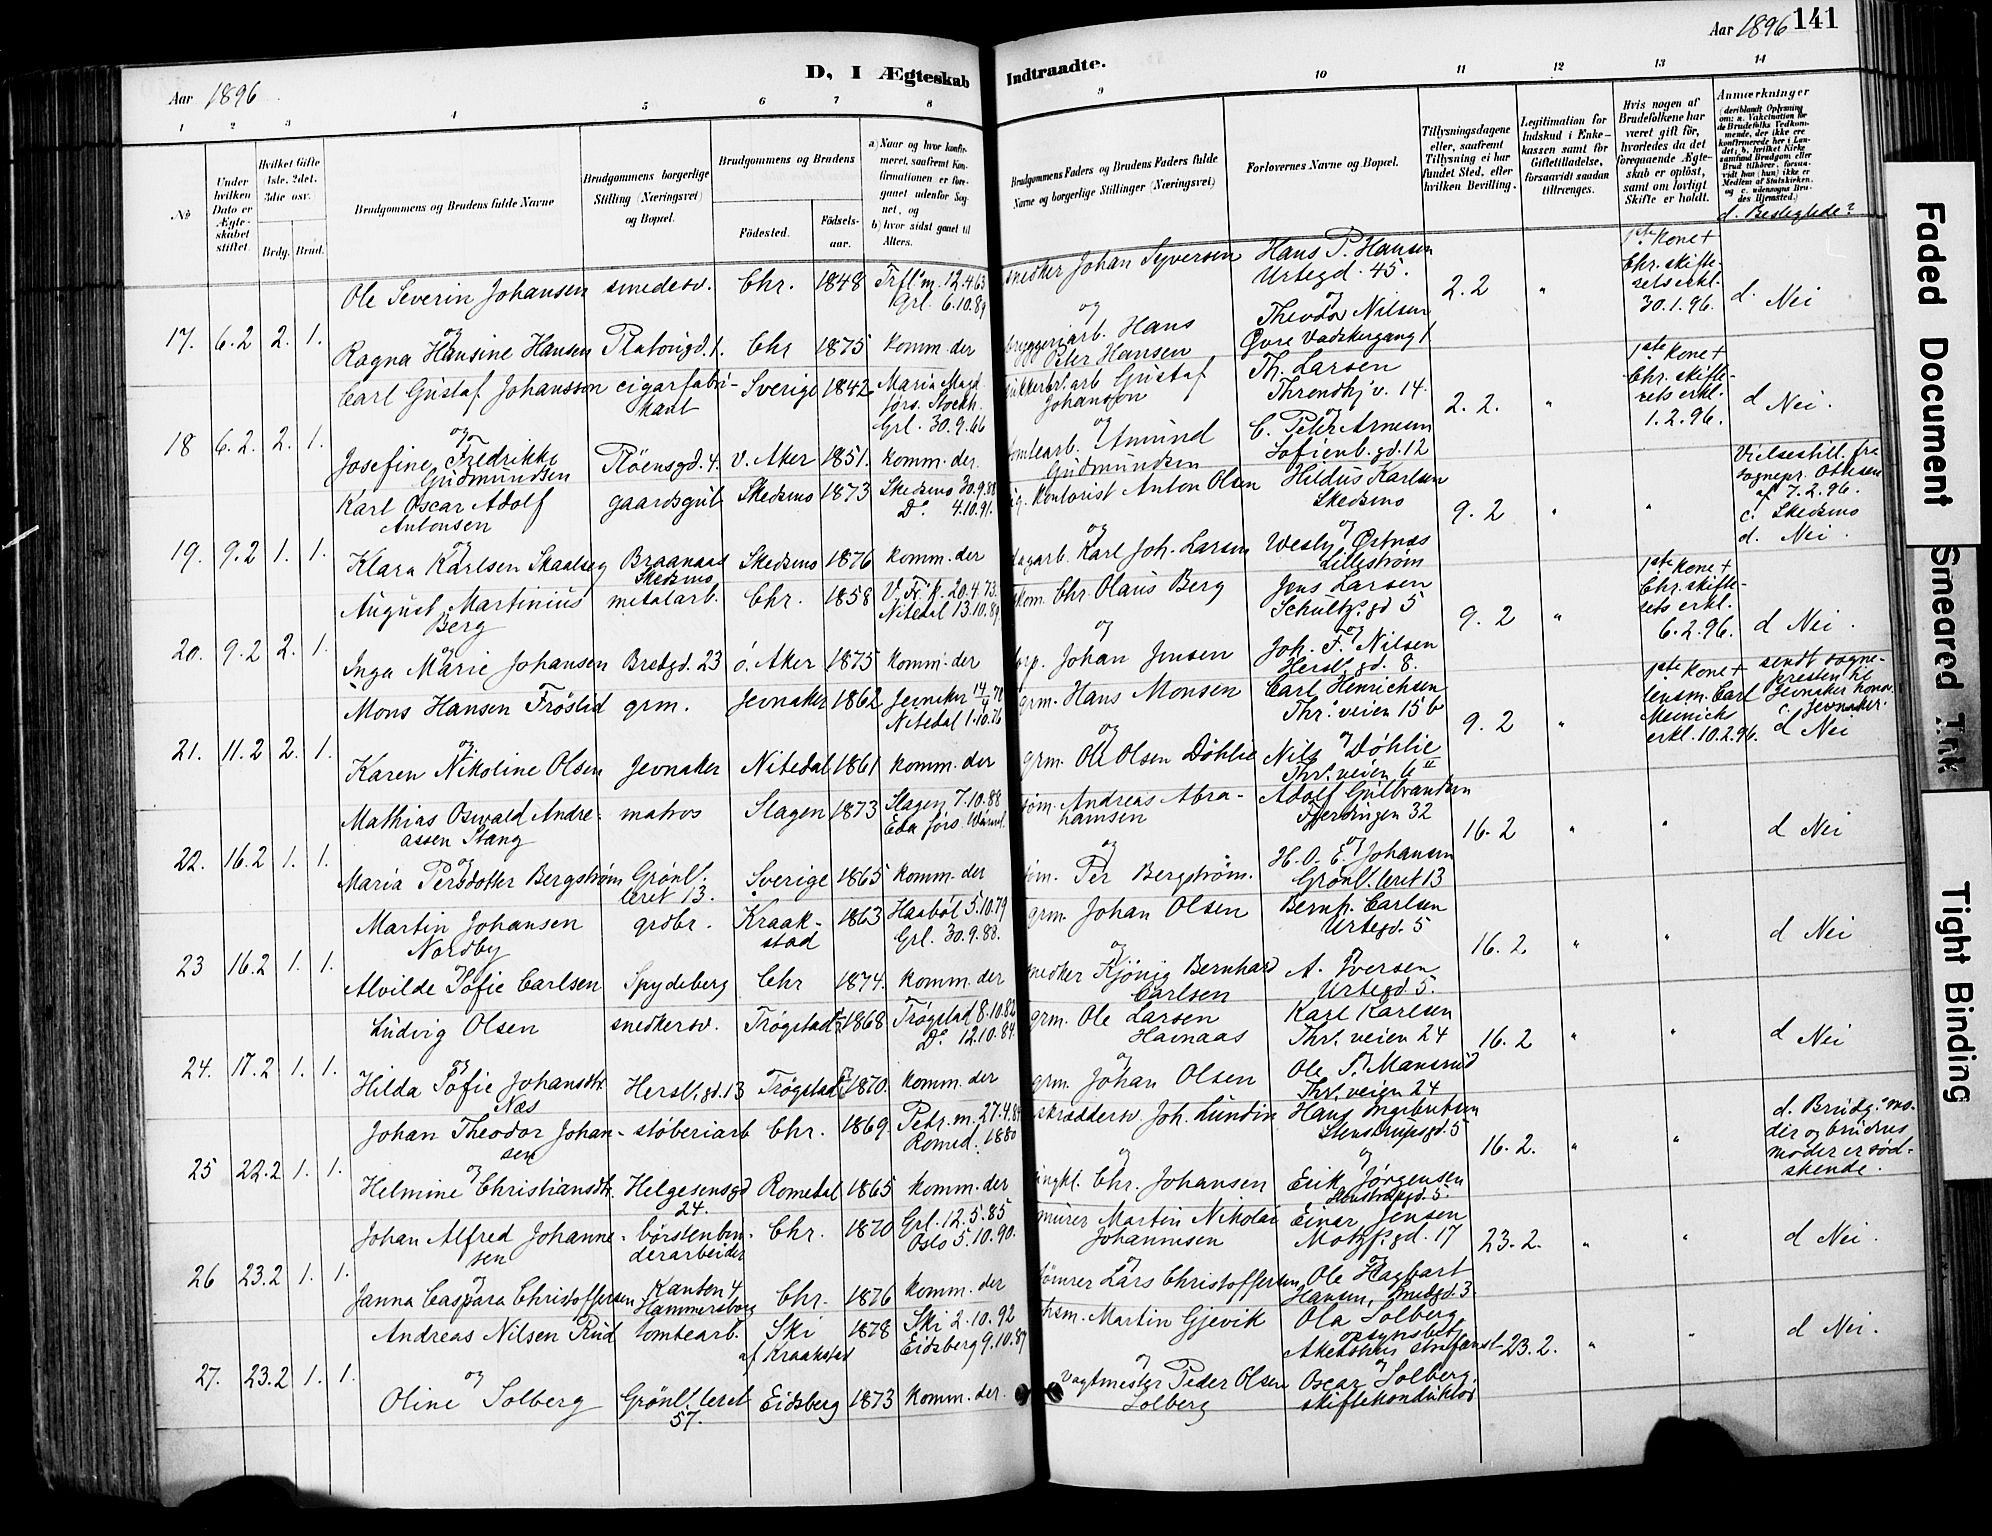 Aar 1896
D, I Ægteskab
Indtraadte.
Aar 1896 141
1 2 3 4 5 6 7 8 9 10 11 12 13 14
No
Under hvilken Dato er Ægteskabet stiftet.
Hvilket Gifte 1ste, 2det, 3die osv.
Brdg. Brud.
Brudgommens og Brudens fulde Navne
Brudgommens borgerlige Stilling (Næringsvei) og Bopæl.
Brudgommens og Brudens
Födested. Födselsaar.
a) Naar og hvor konfirmeret, saafremt Konfirmationen er foregaaet udenfor Sognet, og
b) hvor sidst gaaet til Alters.
Brudgommens Faders og Brudens Faders fulde Navne og borgerlige Stillinger (Næringsvei)
Forlovernes Navne og Bopæl.
Tillysningsdagene eller, saafremt Tillysning ei har fundet Sted, efter hvilken Bevilling.
Legitimation for Indskud i Enkekassen samt for Giftetilladelse, forsaavidt saadan tiltrænges.
Hvis nogen af Brudefolkene har været gift før, hvorledes da det foregaaende Ægteskab er oplöst, samt om lovligt Skifte er holdt.
Anmærkninger
d. Beslegtede?
17. 6.2 2. 1.
Ole Severin Johansen smedesv. Chr. 1848 Trfl. m. 12.4.63
Grl. 6.10.89
snedker Johan Syversen Hans P. Hansen
Urtegd. 45.
2.2 " 1ste kone +
Chr. skifte-
rets erkl.
30.1.96. d. Nei
og
Ragna Hansine Hansen Platousgd. 1. Chr 1875 komm. der
bryggeriarb. Hans
Peter Hansen
Theodor Nilsen
Øvre Vadskergang 1
18 6.2. 2. 1.
Carl Gustaf Johansson cigarfabri-
kant Sverige 1842 Maria Magd.
förs. Stockh.
Grl. 30.9.66
Gustaf
Johansson
Th. Larsen
Throndhj v. 14.
2.2. " 1ste kone +
Chr. skifte-
rets erkl.
1.2.96. d Nei.
og
Josefine Fredrikke
Gudmundsen Fløensgd. 4. V. Aker 1851. komm. der.
tomtearb. Amund
Gudmundsen
C. Peter Arnesen
Sofienb. gd. 12
19. 9.2 1. 1.
Karl Oscar Adolf
Antonsen gaardsgut Skedsmo 1873 Skedsmo 30.9.88
Do. 4.10.91.
kontorist Anton Olsen Hildus Karlsen
Skedsmo
9.2 " " Vielsestill. fra
sognepr. Ottesen
af 7.2.96.
c. Skedsmo
d. Nei.
og
Klara Karlsen Skaalseg Braanaas
Skedsmo Skedsmo 1876 komm. der
dagarb. Karl Joh. Larsen Wesly Østnæs
Lillestrøm
20. 9.2 2. 1.
August Martinius
Berg metalarb. Chr. 1858 V. Fr. k. 20.4.73.
Nitedal 13.10.89
Chr. Olaus Berg Jens Larsen
Schultz. gd 5
9.2 " 1ste kone +
Chr. skifte-
rets erkl.
6.2.96. d Nei.
og
Inga Marie Johansen Bredgd. 23 ö. Aker 1875 komm. der
Johan Jensen Joh. F. Nilsen
Hersl. gd. 8.
21. 11.2 2. 1.
Mons Hansen Fröslid grm. Jevnaker 1862 Jevnaker 14/4 78
Nitedal 1.10.76
grm. Hans Monsen Carl Henrichsen
Thr. veien 15 b
9.2 " 1ste kone +
lensm. Carl
Meinichs
erkl. 10.2.96. sendt sogne-
presten til
Jevnaker
c. Jevnaker.
d Nei
og
Karen Nikoline Olsen Jevnaker Nitedal 1861 komm. der
grm. Ole Olsen Döhlie Nils Døhlie
Thr. veien 6 II
22. 16.2 1. 1.
Mathias Oswald Andre-
assen Stang matros Slagen 1873 Slagen 7.10.88
Eda förs. Värml.
Andreas Abra-
hamsen
Adolf Gulbrandsen
Fjerdingen 32
16.2 " " d Nei
og
Maria Persdotter Bergström Grönl.
leret 13. Sverige 1865 komm. der
Per Bergström. H. O. E. Johansen
Grönl. leret 13
23 16.2 1. 1.
Martin Johansen
Nordby grdbr. Kraak-
stad 1863 Haabøl 5.10.79
Grl. 30.9.88.
grm. Johan Olsen Bernh. Carlsen
Urtegd. 5
16.2 " " d Nei
og
Alvilde Sofie Carlsen Spydeberg Chr 1874. komm. der
snedker Kjönig Bernhard
Carlsen
A. Iversen
Urtegd. 5.
24. 17.2 1. 1.
Ludvig Olsen snedkersv. Trögstad 1868 Trögstad 8.10.82
Do. 12.10.84.
grm. Ole Larsen
Havnaas
Karl Karlsen
Thr. veien 24
16.2 " " d Nei
og
Hilda Sofie Johansdtr.
Næs Hersl. gd. 13 Trögstad 1870. komm. der
grm. Johan Olsen Ole S. Mansrud
Thr. veien 24
25 22.2 1. 1.
Johan Theodor Johan-
sen støberiarb Chr. 1869. Petr. m. 27.4.84
Romed. 1880
skræddersv. Joh. Lundin Hans Ingebretsen
Stenstrupsgd. 5
16.2. " " d. Brudg.s mo-
der og brudens
moder er sød-
skende.
og
Helmine Christiansdtr. Helgesensgd
24. Romedal 1865 komm. der
Chr. Johansen Erik Jørgensen
Stenstrupgd. 5.
26 23.2 1. 1.
Johan Alfred Johanne-
sen börstenbin-
derarbeider Chr. 1870 Grl. 12.5.85
Oslo 5.10.90.
murer Martin Nikolai
Johannesen
Einar Jensen
Motzf. gd. 17
23.2. " " d Nei.
og
Janna Caspara Christoffersen Kanton 4
Hammersborg Chr. 1876 komm. der
tömrer Lars Christoffersen Ole Hagbart
Hansen, Smedgd. 3
27. 23.2 1. 1.
Andreas Nilsen Rud tomtearb. Ski
af Kraakstad 1878 Ski 2.10.92
Eidsberg 9.10.87
hsm. Martin Gjevik Ola Solberg
opsynsbetj.
Akershus strafanst.
23.2. " " d Nei.
og
Oline Solberg Grönl. leret
57. Eidsberg 1873 komm. der.
Vagtmester Peder Olsen
Solberg
Oscar Solberg.
skiftekonduktør
Faded Document
Smeared Ink
Tight Binding